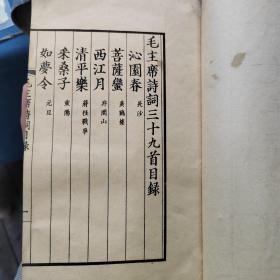 毛主席詩詞三十九首目録
沁園春 長沙
菩薩蠻 黃鶴樓
西江月 井岡山
清平樂 蔣桂戰爭
采桑子 重陽
如夢令 元旦
毛主席詩詞目録
一